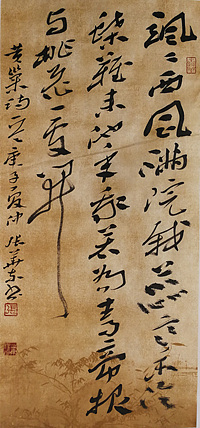 飒々西风满院栽蕊寒香冷
蝶难来他年我若为青帝报
与桃花一处开
黄巢诗一首庚子夏仲张华东书